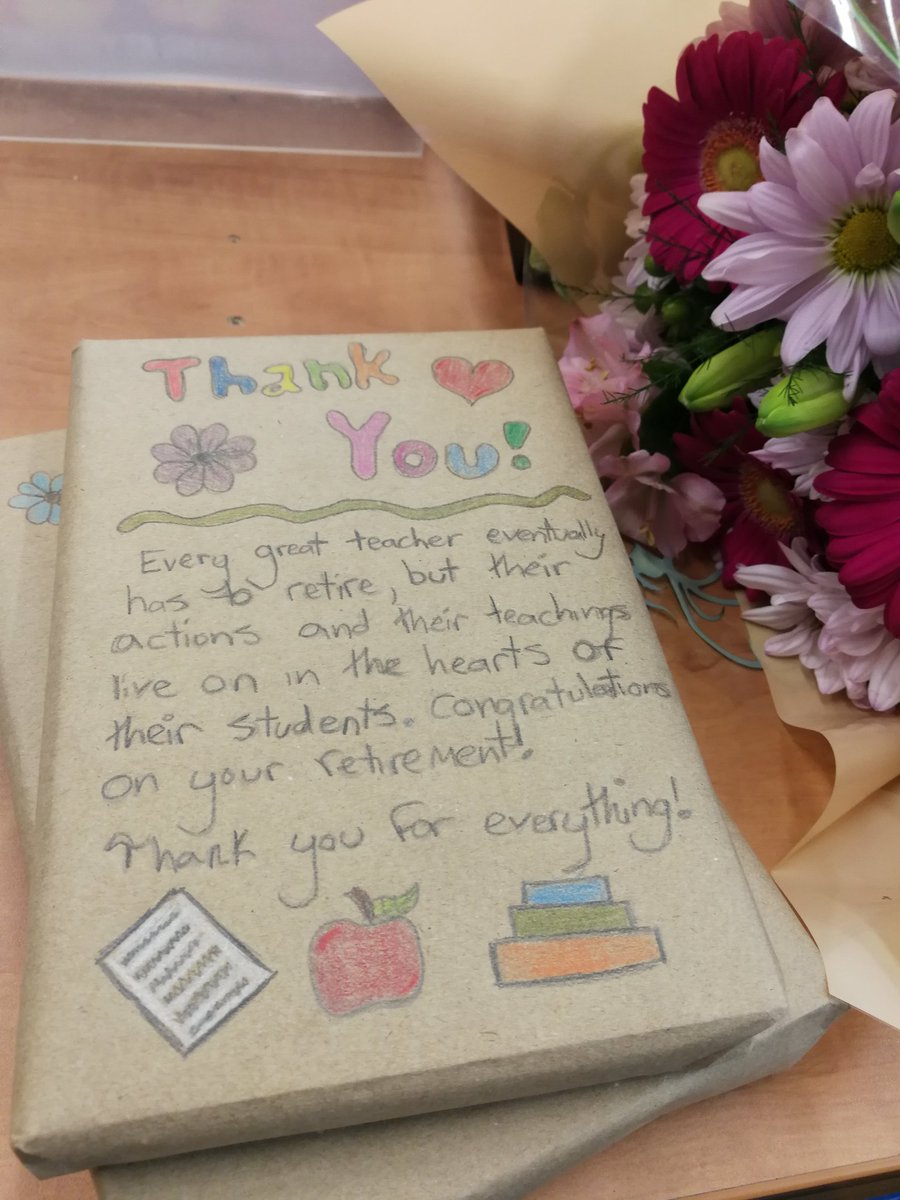 Thank
You!
Every great teacher eventually
has to retire, but their
actions and their teachings
live on in the hearts of
their students. Congratulations
on your retirement!
Thank you for everything!